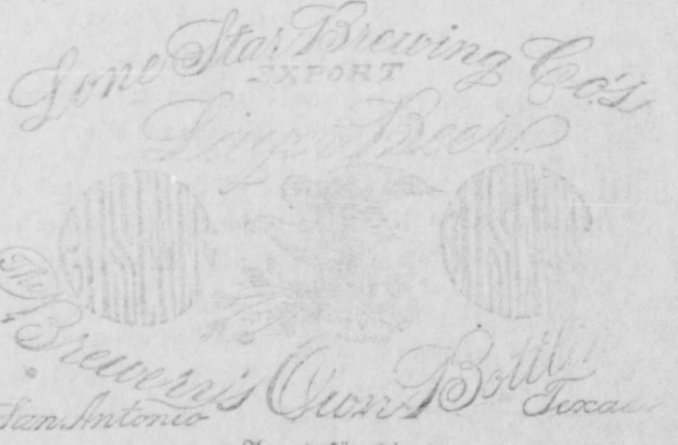 Lone Star Brewing Co's
EXPORT
Lager Beer
The
Brewery's Own Bottling
San Antonio Texas